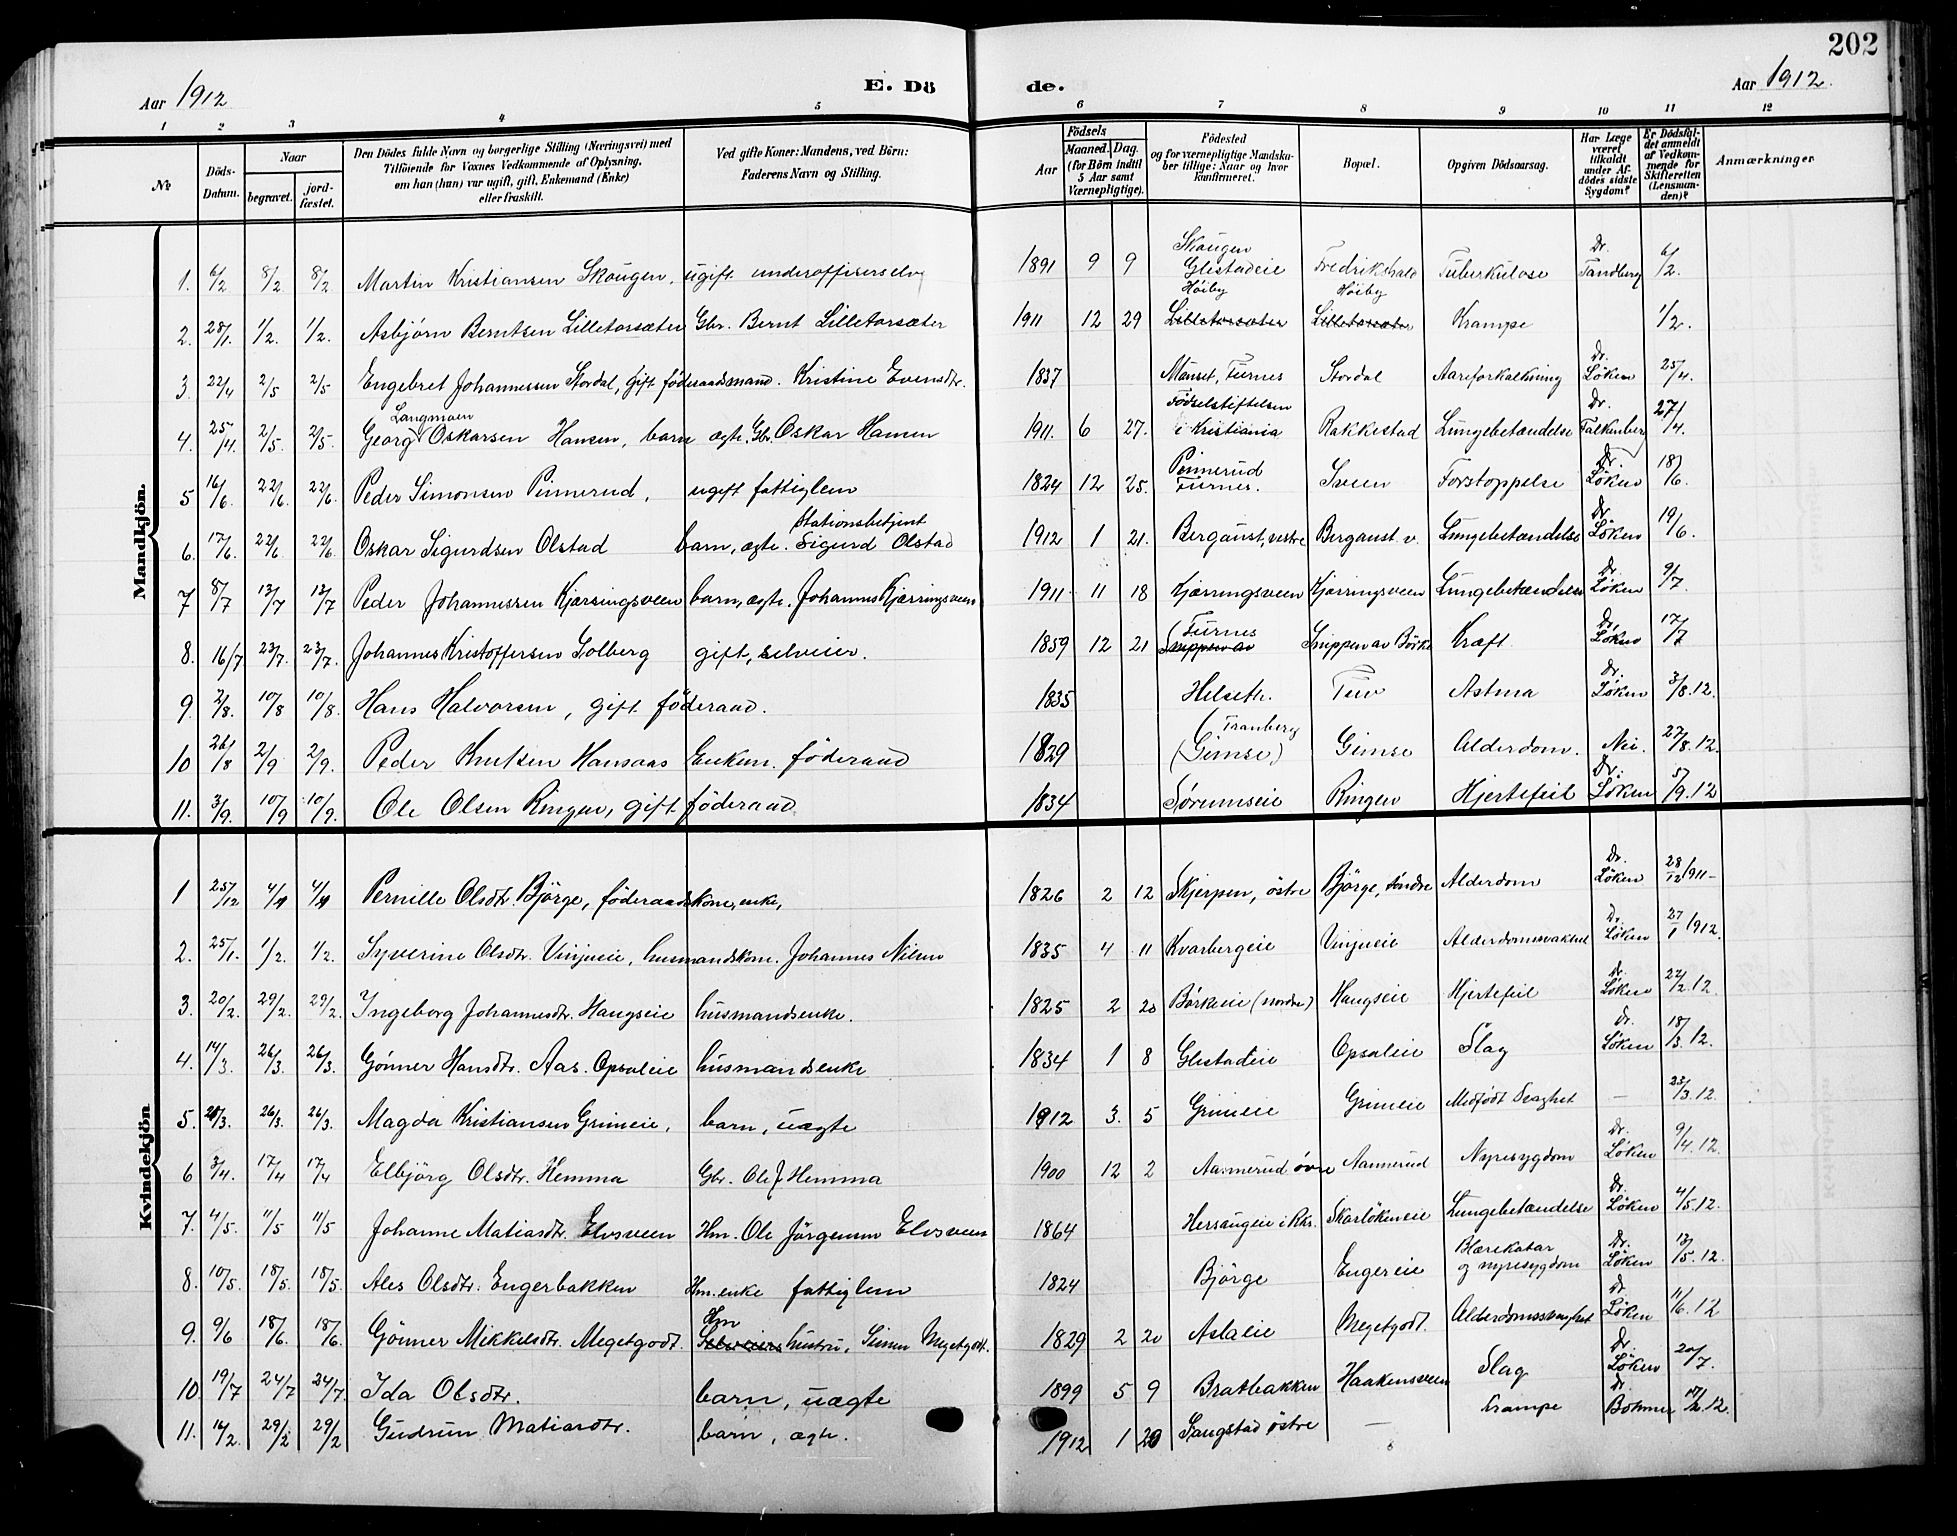 202
Aar 1912 E. Dö de. Aar 1912.
1 2 3 4 5 6 7 8 9 10 11 12
No
Döds-Datum.
Naar
begravet. jordfæstet.
Den Dödes fulde Navn og borgerlige Stilling (Næringsvei) med Tilföiende for Voxnes Vedkommende af Oplysning, om han (hun) var ugift, gift, Enkemand (Enke) eller fraskilt.
Ved gifte Koner: Mandens, ved Börn: Faderens Navn og Stilling.
Födsels
Aar Maaned. Dag. (for Börn indtil 5 Aar samt Værnepligtige).
Födested og for værnepligtige Mandskaber tillige: Naar og hvor konfirmeret.
Bopæl.
Opgiven Dödsaarsag.
Har Læge været tilkaldt under Afdödes sidste Sygdom?
Er Dödsfaldet anmeldt af Vedkommende for Skifteretten (Lensmanden)?
Anmærkninger
Mandkjön.
1. 6/2 8/2 8/2 Martin Kristiansen Skougen, ugift underoffiserselv 1891 9 9 Skougen Glestadeie Fredrikshald Tuberkulose Dr. Tandberg 6/2.
2. 28/1. 1/2. 1/2. Asbjörn Berntsen Lilletorsæter Gbr. Bernt Lilletorsæter 1911 12 29 Höiby Lilletorsæter Höiby Lilletorsæter Krampe 1/2.
3 22/4 2/5 2/5 Engebret Johannessen Stordal, gift föderaadsmand. Kristine Evensdtr. 1837 Manset, Furnes Stordal Aareforkalkning Dr. Löken 25/4.
4. 25/4. 2/5. 2/5. Georg Langmoen Oskarsen Hansen, barn ægte. Gbr. Oskar Hansen 1911. 6 27. Födselstiftelsen i Kristiania Rakkestad Lungebetændelse Dr. Falkenberg 27/4.
5 16/6 22/6 22/6. Peder Simonsen Pinnerud, ugift fattiglem 1824 12 25. Pinnerud Furnes. Sveen Forstoppelse Dr. Löken 18/6.
6. 17/6. 22/6 22/6. Oskar Sigurdsen Olstad barn, ægte. Stationsbetjent Sigurd Olstad 1912 1 21. Bergaust, vestre Bergaust v. Lungebetændelse Dr. Löken 19/6.
7 8/7 13/7 13/7 Peder Johannessen Kjærringsveen barn, ægte. Johannes Kjærringsveen 1911. 11 18 Kjærringsveen Kjærringsveen Lungebetændelse Dr. Löken 9/7.
8. 16/7 23/7. 23/7. Johannes Kristoffersen Solberg gift, selveier. 1859 12 21 Furnes Snippen av Snippen av Börke Kræft Dr. Löken 17/7
9. 2/8. 10/8 10/8. Hans Halvorsen, gift föderaad. 1835 Helseth. Astma Dr. Löken 3/8.12.
10 26/8 2/9 2/9. Peder Knutsen Hansaas Enkem. föderaad 1829 Tranberg (Gimse) Gimse Alderdom. Nei. 27/8.12.
11. 3/9. 10/9 10/9. Ole Olsen Ringen, gift föderaad 1834 Sörumseie Ringen Hjertefeil Dr. Löken 5/9.12
Kvindekjön
1 25/12 4/1 4/1 Pernille Olsdtr. Björge, föderaadskone, enke, 1826 2 12 Skjerpen, östre Björge, söndre Alderdom Dr. Löken 28/12 1911-
2. 25/1. 1/2. 1/2. Syverine Olsdtr. Vinjueie, husmandskone. Johannes Nilsen 1835 4 11 Kvarbergeie Vinjueie Dr. Löken 27/1 1912.
3. 20/2. 29/2. 29/2. Ingeborg Johannesdtr. Haugseie husmandsenke. 1825 2 20 Börkeeie (nordre) Haugseie Hjertefeil Dr. Löken 22/2.12
4. 14/3. 26/3 26/3. Gönner Hansdtr. Aas. Opsaleie husmandsenke 1834 1 8 Glestadeie Opsaleie Slag Dr. Löken 18/3.12.
5. 21/3. 26/3. 26/3. Magda Kristiansen Grimeie, barn, uægte 1912 3. 5 Grimeie Grimeie Medfödt Svaghet — 23/3.12.
6 3/4. 17/4 17/4 Elbjörg Olsdtr. Hemma Gbr. Ole J Hemma 1900 12 2 Aannerud övre Aannerud Nyresygdom Dr. Löken 9/4.12.
7. 4/5. 11/5 11/5 Johanne Matiasdtr. Elvsveen Hm. Ole Jörgensen Elvsveen 1864 Hersaugeie i Rks. Skarlökeneie Lungebetændelse Dr. Löken 4/5.12.
8. 10/5. 18/5. 18/5. Ales Olsdtr. Engerbakken Hm. enke fattiglem 1824 Björge Engereie Blærekatar og nyresygdom Dr. Löken 13/5.12.
9. 9/6 18/6. 18/6. Gönner Mikkelsdtr. Megetgodt. Hm Selveiers hustru, Simen Megetgodt. 1829 2 20 Aslaeie Megetgodt. Alderdomssvaghet Dr. Löken 11/6.12
10. 19/7 24/7 24/7. Ida Olsdtr. barn, uægte 1899 5 9 Bratbakken Haakensveen Slag Dr. Löken 20/7.
11. 14/2. 29/2 29/2 Gudrun Matiasdtr. barn, ægte. 1912 1 20 Saugstad östre — Krampe Dr. Bohmer 17/2.12.